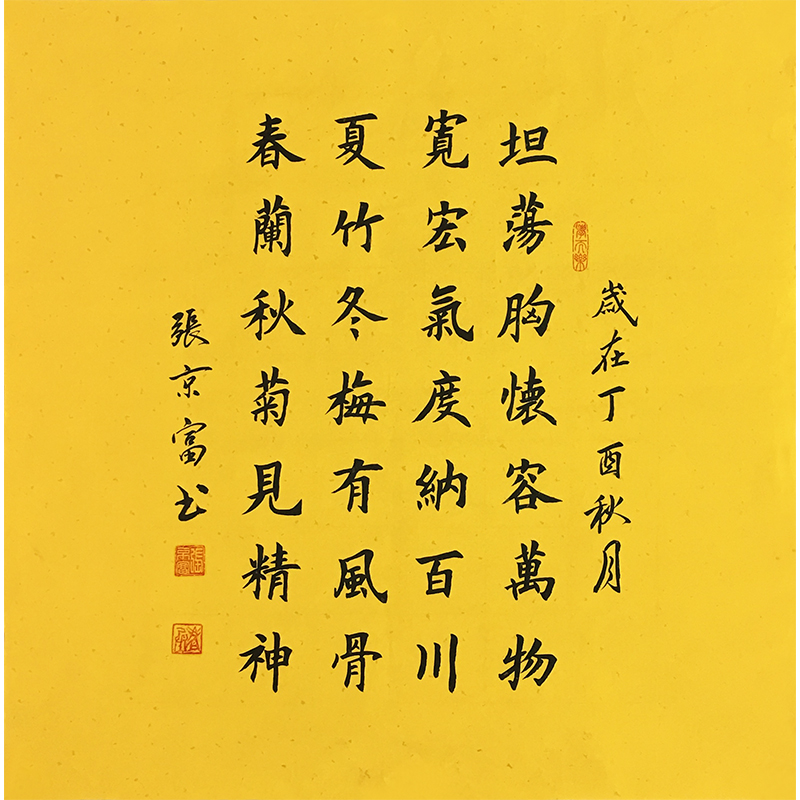 歲在丁酉秋月
坦蕩胸懷容萬物
寬宏氣度納百川
夏竹冬梅有風骨
春蘭秋菊見精神
張京富书